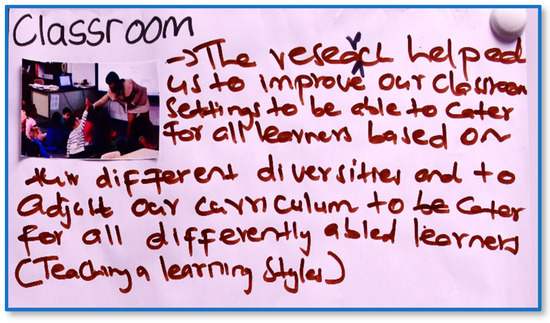 Classroom
→ The research helped
us to improve our classroom
settings to be able to cater
for all learners based on
their different diversities and to
Adjust our curriculum to be Cater
for all differently abled learners
(Teaching a learning Styles)